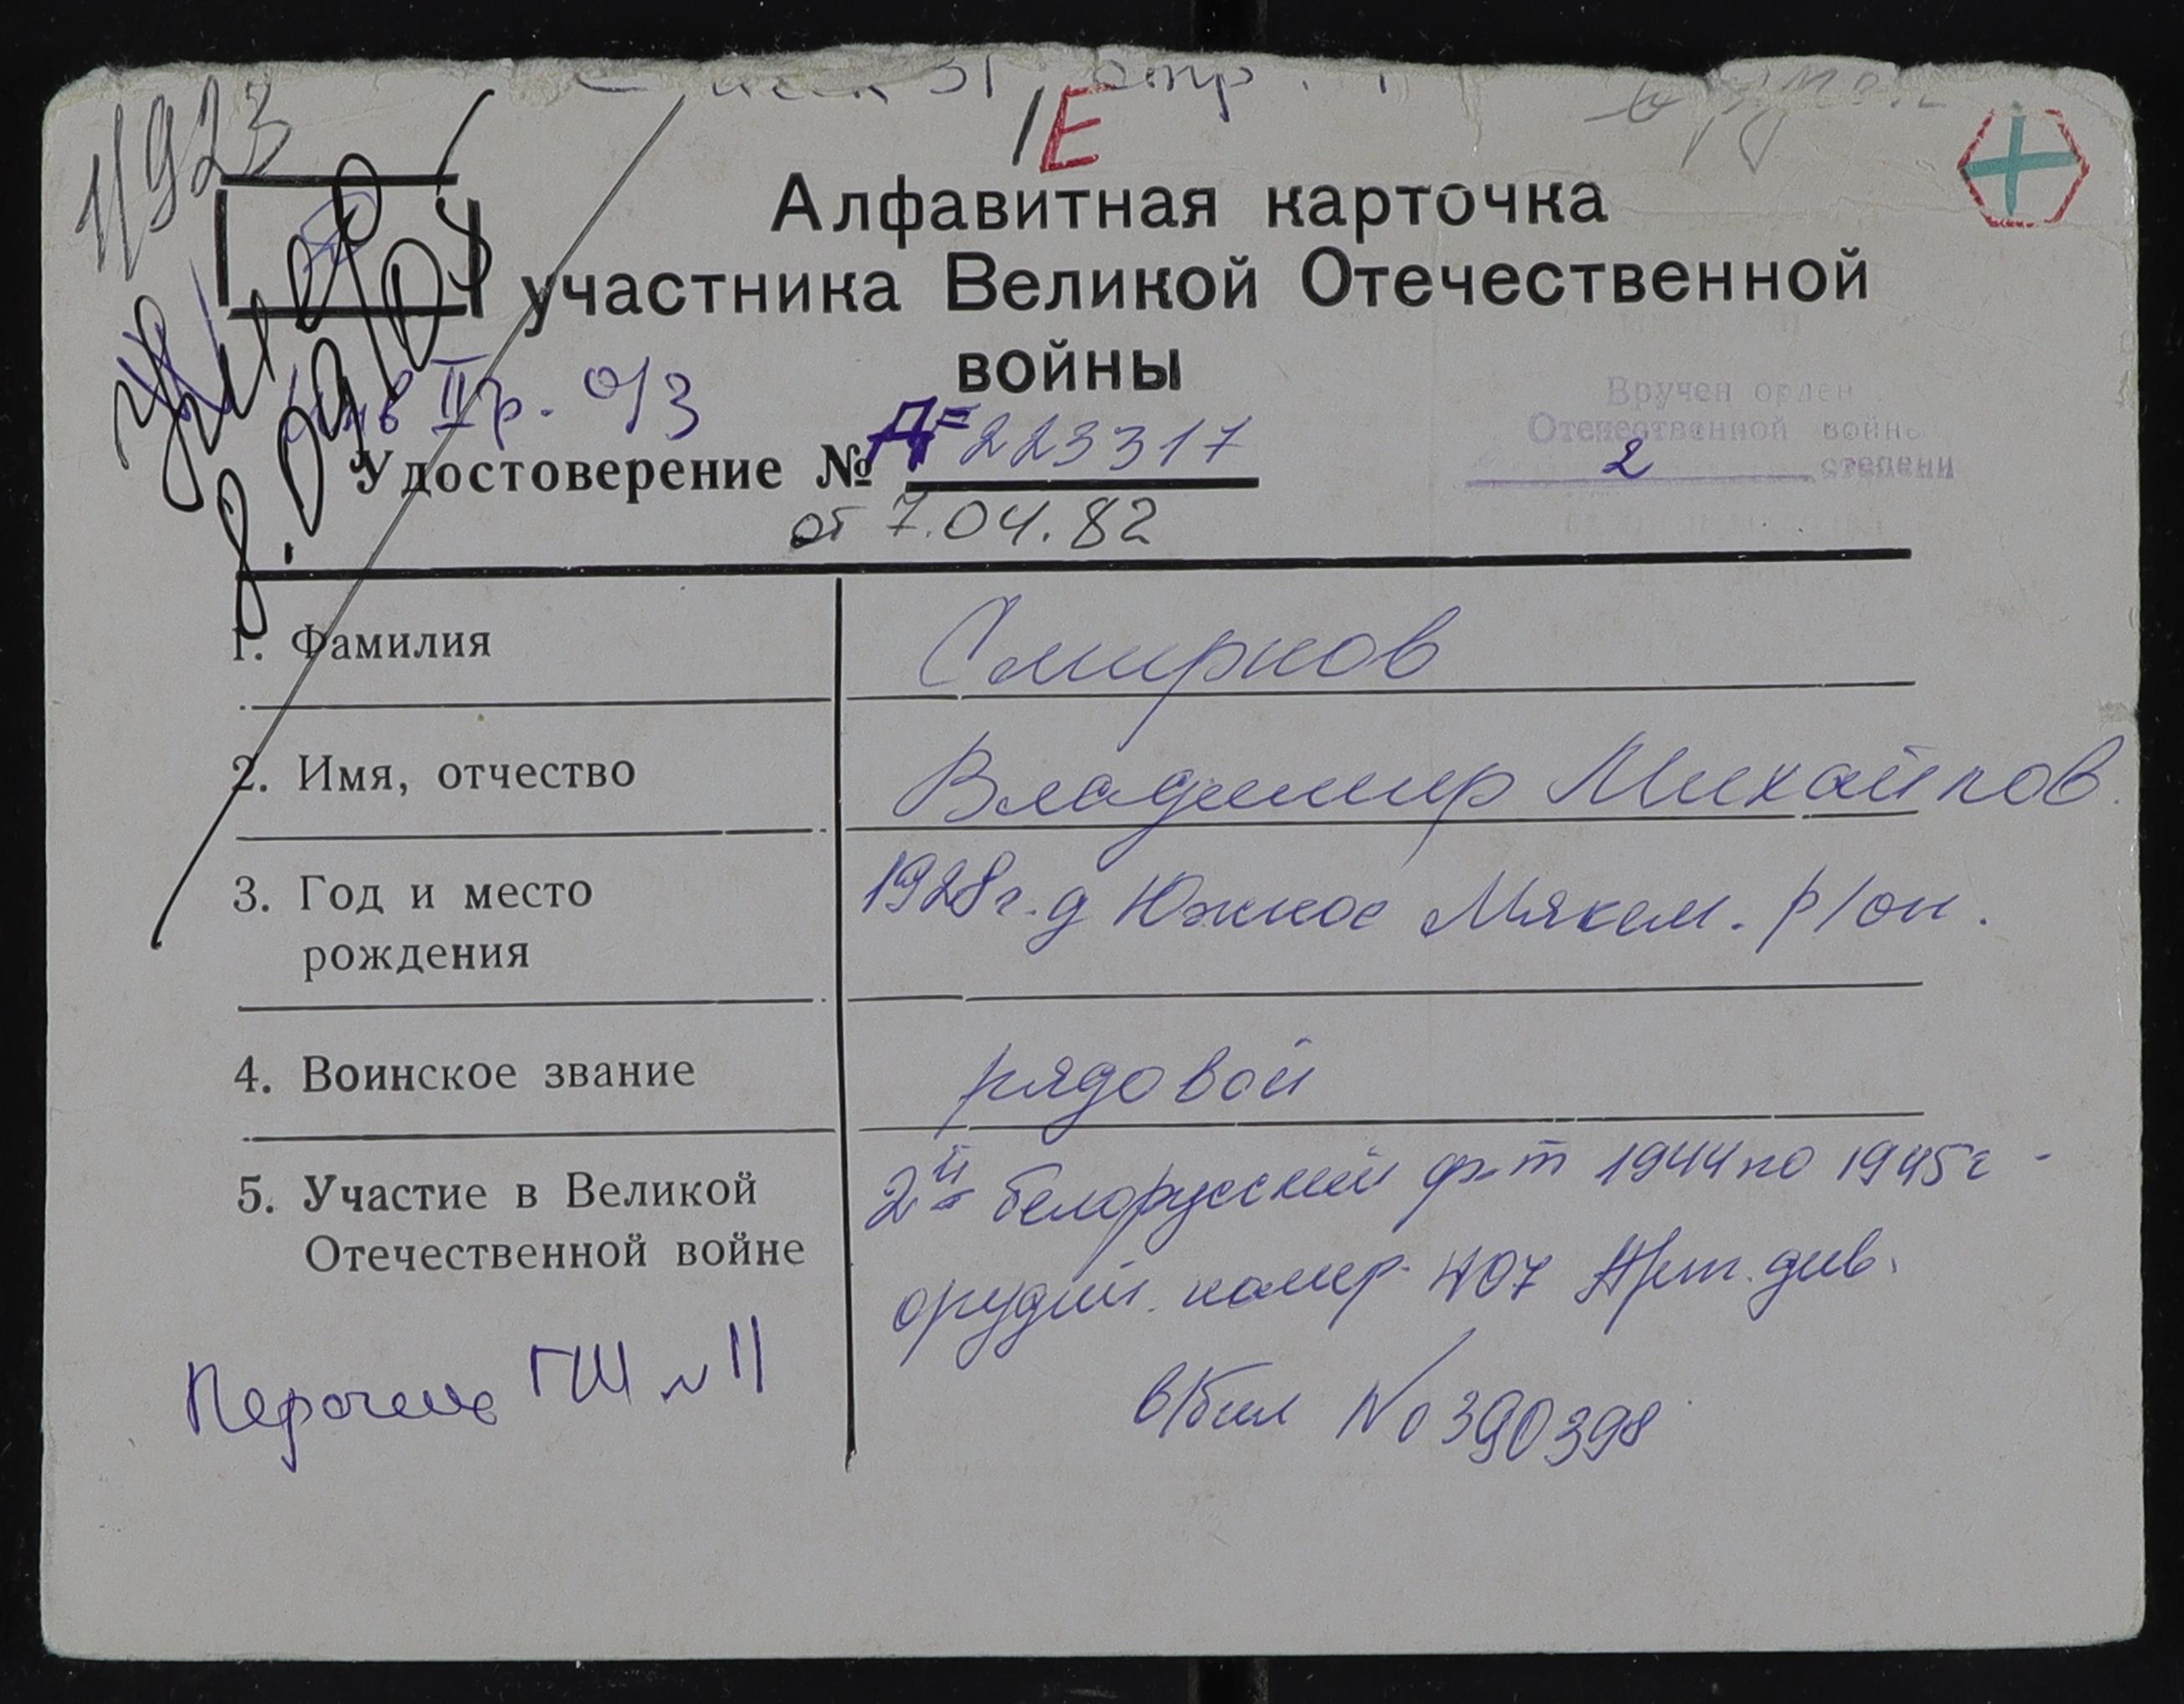 11923
1Е
Алфавитная карточка
участника Великой Отечественной
войны
инв II гр. О/З
Умер
8.09.
Удостоверение № Д= 223317
от 7.04.82
Вручен орден
Отечественной войны
2 степени
1. Фамилия
Смирнов
2. Имя, отчество
Владимир Михайлов.
3. Год и место
рождения
1928г. д Южное Мякем. р/он.
4. Воинское звание
рядовой
5. Участие в Великой
Отечественной войне
2й белорусский фр-т 1944 по 1945г -
орудий. номер 407 Арт. див.
в/бил No 390398
Перечень ГШ N 11